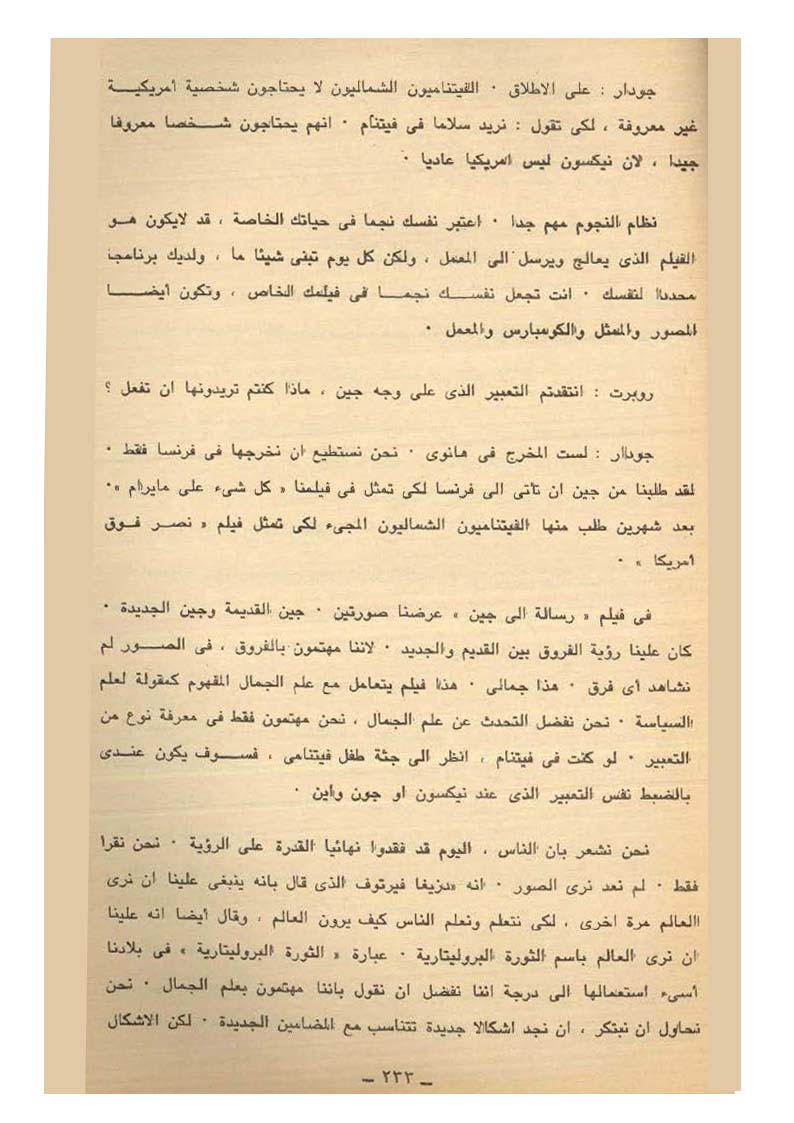 جودار : على الاطلاق ٠ الفيتناميون الشماليون لا يحتاجون شخصية أمريكيـــة
غير معروفة ، لكى تقول : نريد سلاما فى فيتنام ٠ انهم يحتاجون شـــخصا معروفا
جيدا ، لان نيكسون ليس امريكيا عاديا ٠
نظام النجوم مهم جدا ٠ اعتبر نفسك نجما فى حياتك الخاصة ، قد لايكون هــو
الفيلم الذى يعالج ويرسل الى المعمل ، ولكن كل يوم تبنى شيئا ما ، ولديك برنامجا
محددا لنفسك ٠ انت تجعل نفســـك نجمـــا فى فيلمك الخاص ، وتكون أيضـــا
المصور والممثل والكومبارس والمعمل ٠
روبرت : انتقدتم التعبير الذى على وجه جين ، ماذا كنتم تريدونها ان تفعل ؟
جودار : لست المخرج فى هانوى ٠ نحن نستطيع ان نخرجها فى فرنسا فقط ٠
لقد طلبنا من جين ان تأتى الى فرنسا لكى تمثل فى فيلمنا « كل شىء على مايرام »٠
بعد شهرين طلب منها الفيتناميون الشماليون المجىء لكى تمثل فيلم « نصـر فــوق
أمريكا » ٠
فى فيلم « رسالة الى جين » عرضنا صورتين ٠ جين القديمة وجين الجديدة ٠
كان علينا رؤية الفروق بين القديم والجديد ٠ لاننا مهتمون بالفروق ، فى الصـــور لم
نشاهد أى فرق ٠ هذا جمالى ٠ هذا فيلم يتعامل مع علم الجمال المفهوم كمقولة لعلم
السياسة ٠ نحن نفضل التحدث عن علم الجمال ، نحن مهتمون فقط فى معرفة نوع من
التعبير ٠ لو كنت فى فيتنام ، انظر الى جثة طفل فيتنامى ، فســـوف يكون عنــدى
بالضبط نفس التعبير الذى عند نيكسون او جون واين ٠
نحن نشعر بان الناس ، اليوم قد فقدوا نهائيا القدرة على الرؤية ٠ نحن نقرا
فقط ٠ لم نعد نرى الصور ٠ انه «دزيغا فيرتوف الذى قال بانه ينبغى علينا ان نرى
العالم مرة اخرى ، لكى نتعلم ونعلم الناس كيف يرون العالم ، وقال أيضا انه علينا
ان نرى العالم باسم الثورة البروليتارية ٠ عبارة « الثورة البروليتارية » فى بلادنا
أسىء استعمالها الى درجة اننا نفضل ان نقول باننا مهتمون بعلم الجمال ٠ نحن
نحاول ان نبتكر ، ان نجد اشكالا جديدة تتناسب مع المضامين الجديدة ٠ لكن الاشكال
— ٢٣٣ —